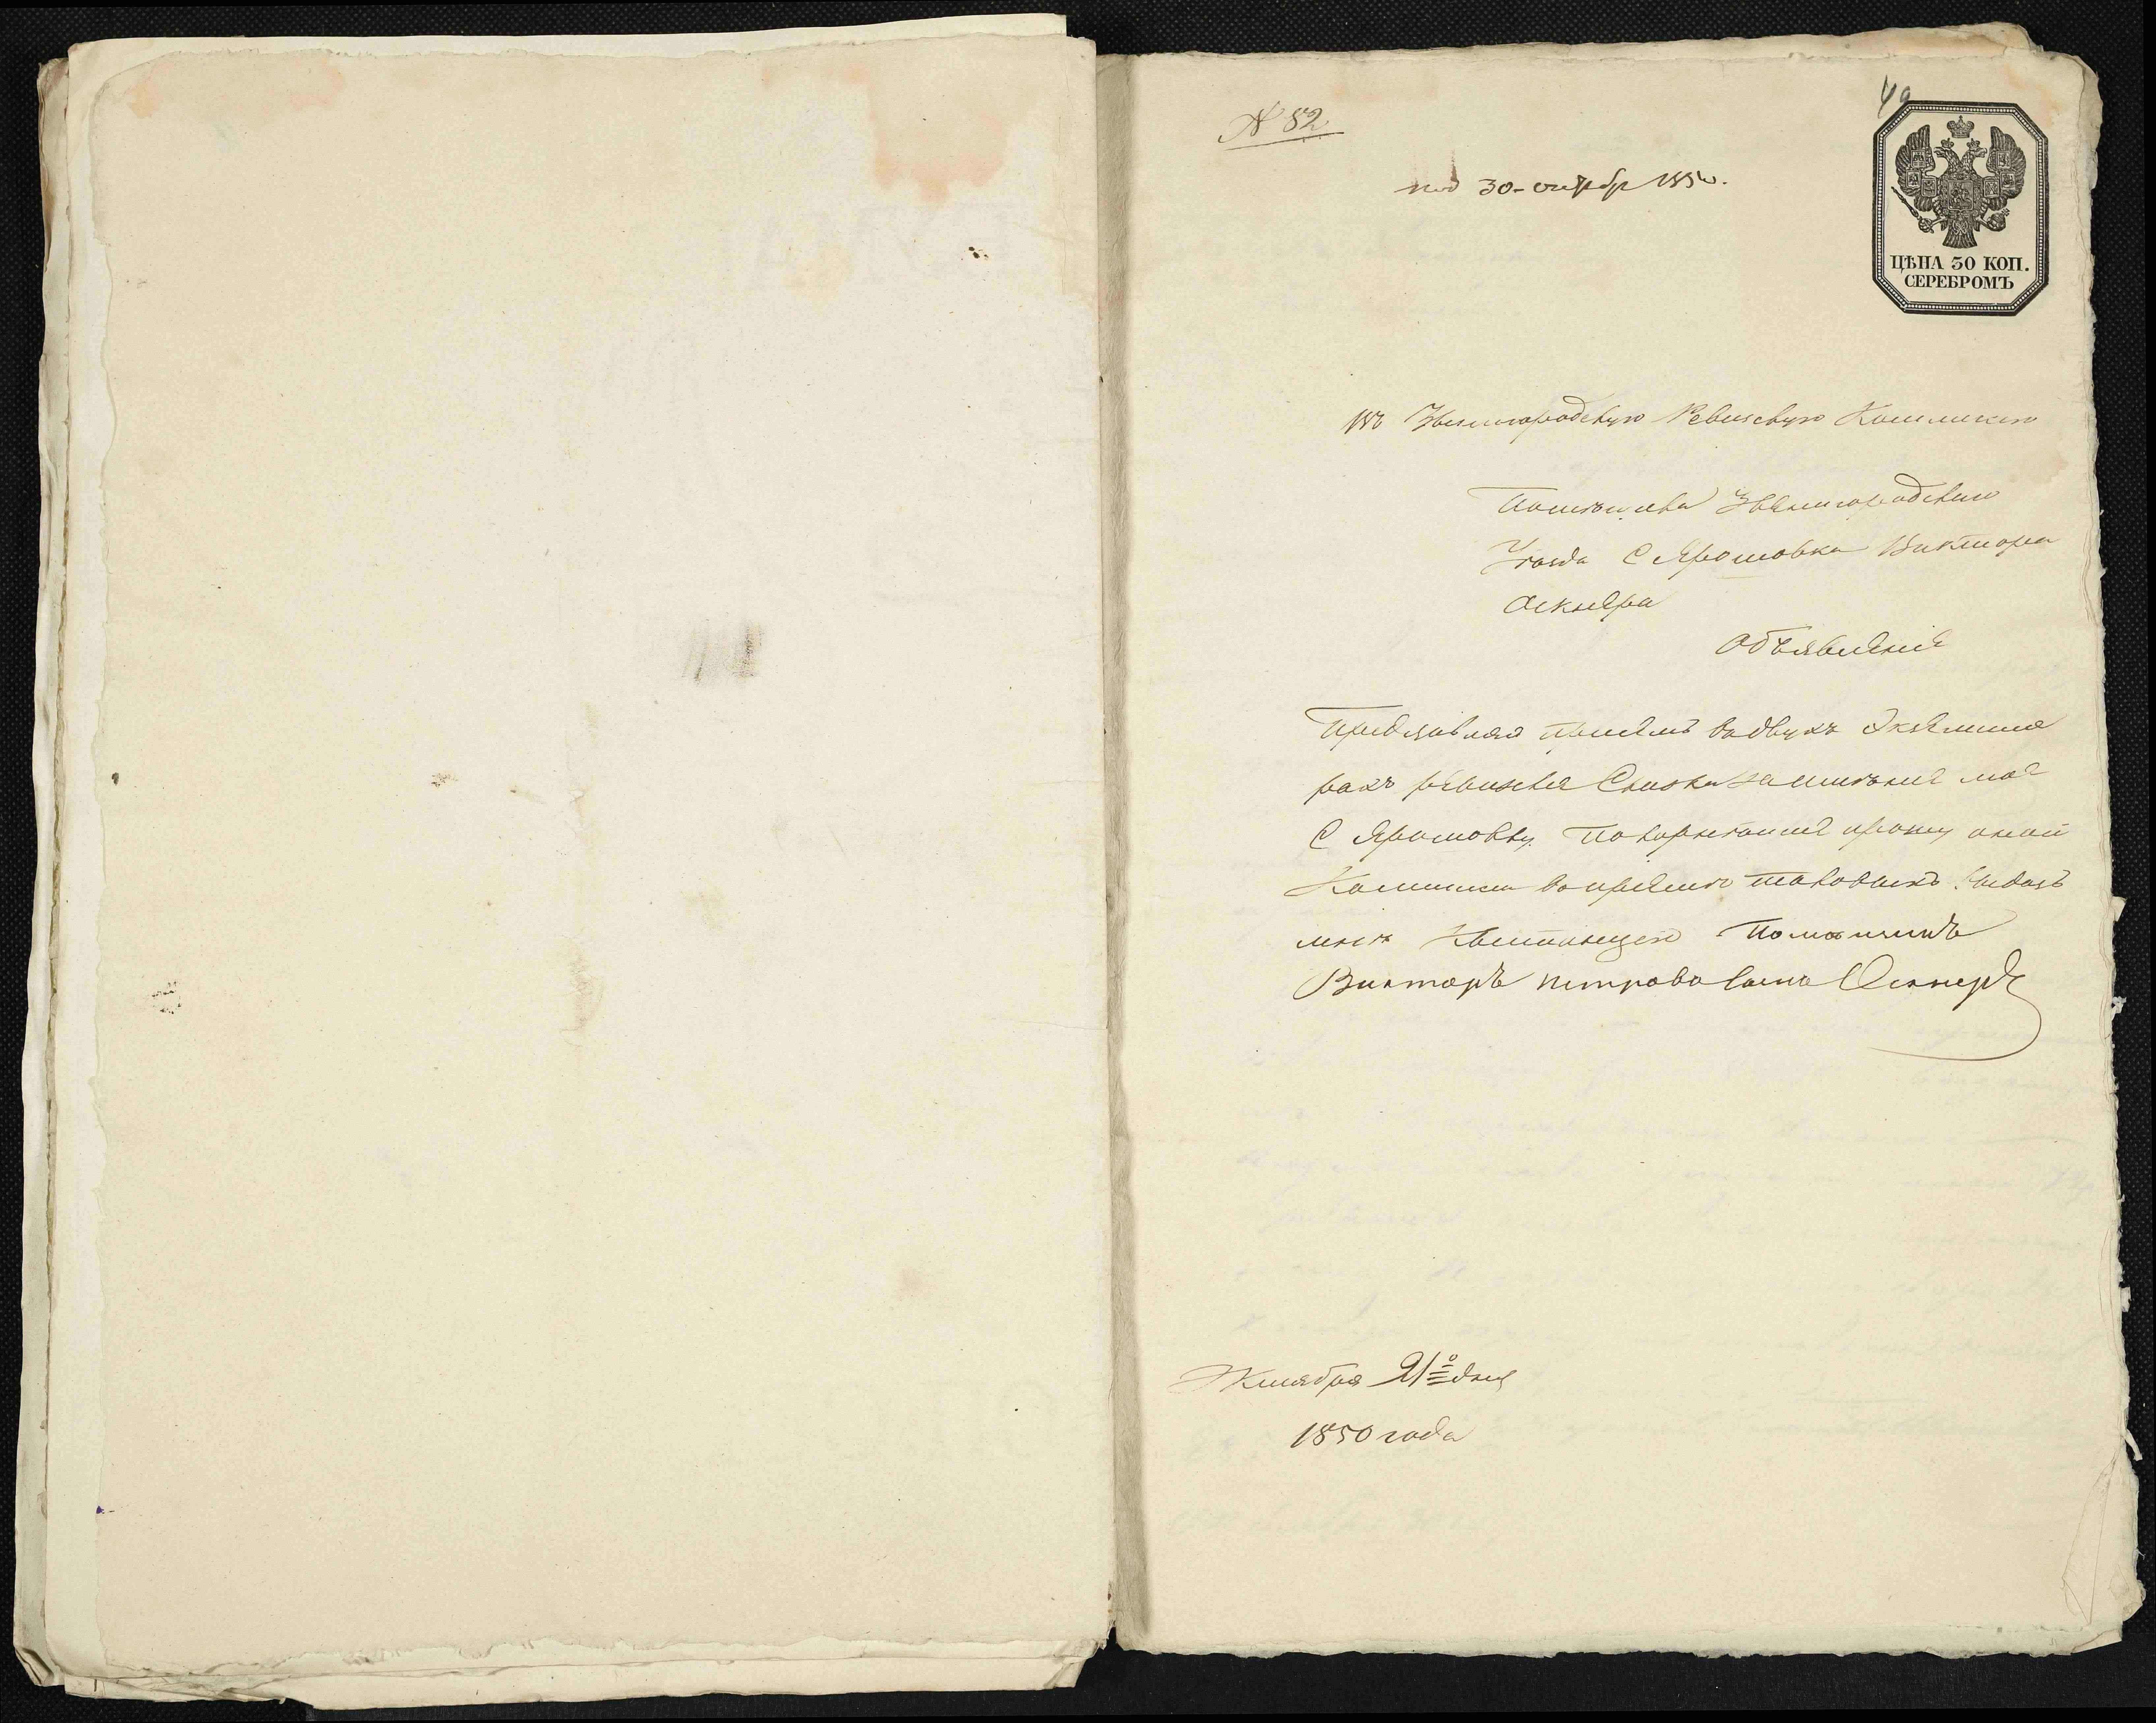 49
N 82
под 30 октябр 1850.
ЦѢНА 30 КОП.
СЕРЕБРОМЪ
Въ Звенигородскую Ревизскую Комисию
Помѣщика Звенигородскаго
Уѣзда С Ярошовки Виктора
Оскнера
Объявленіе
Предъявляя присемъ вдвухъ Экземпля
рахъ ревизскія Сказки наимѣніе мое
С Ярошовку. Покорнѣйше прошу оной
Комисіи вопріемѣ таковыхъ выдать
мнѣ Квитанцію Помѣщикъ
Викторъ Петрова сынъ Оскнеръ
Октября 21го дня
1850 года